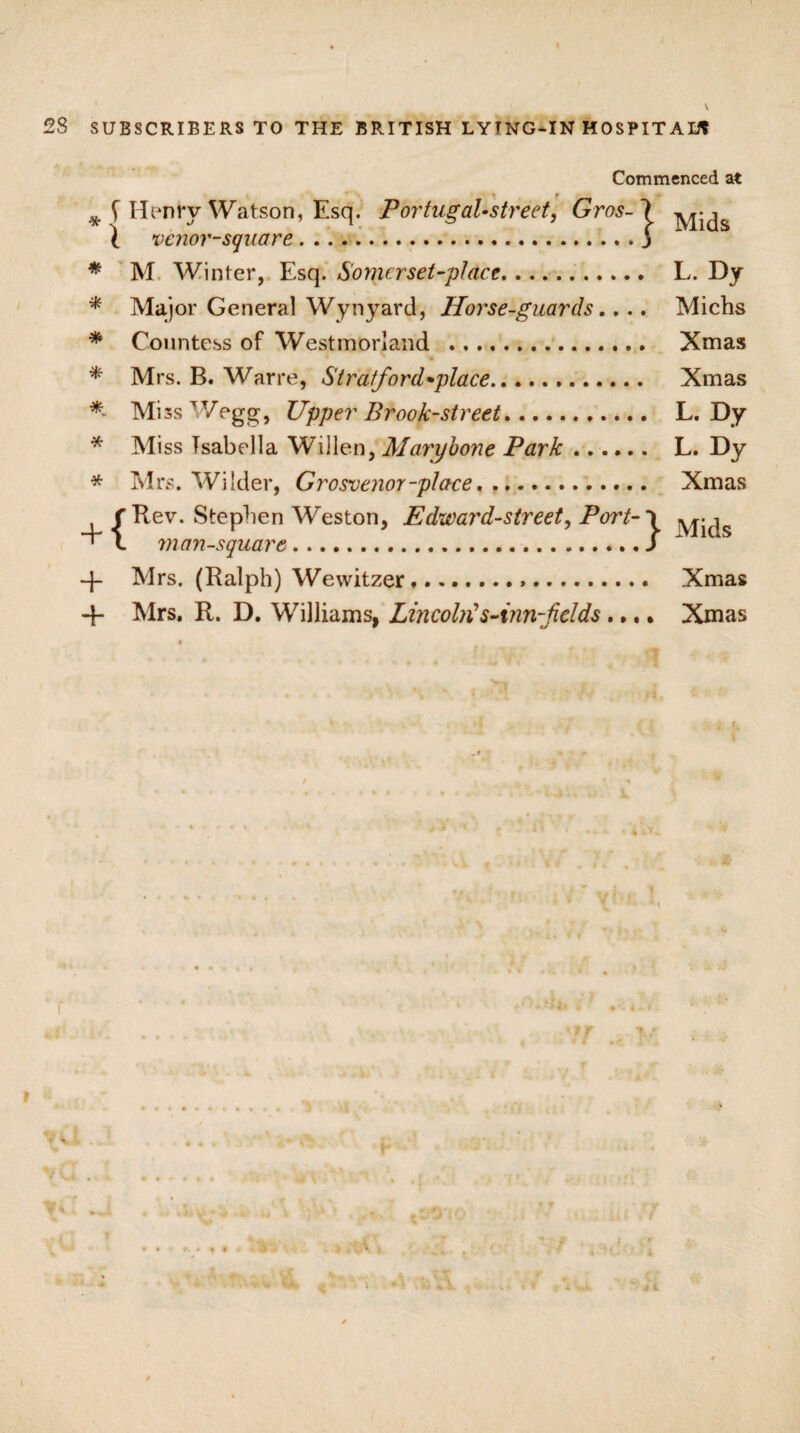 28 SUBSCRIBERS TO THE BRITISH LYING-IN HOSPITAL
Commenced at
* { Henry Watson, Esq. Portugal-street, Gros- } Mids
venor-square
* M Winter, Esq. Somerset-place........... L. Dy
* Major General Wynyard, Horse-guards.... Michs
* Countess of Westmorland ............... Xmas
* Mrs. B. Warre, Stratford-place............ Xmas
* Miss Wegg, Upper Brook-street........... L. Dy
* Miss Isabella Willen, Marybone Park ...... L. Dy
* Mrs. Wilder, Grosvenor-place............. Xmas
+ { Rev. Stephen Weston, Edward-street, Port- } Mids
man-square
+ Mrs. (Ralph) Wewitzer................... Xmas
+ Mrs. R. D. Williams, Lincoln's-inn-fields .... Xmas